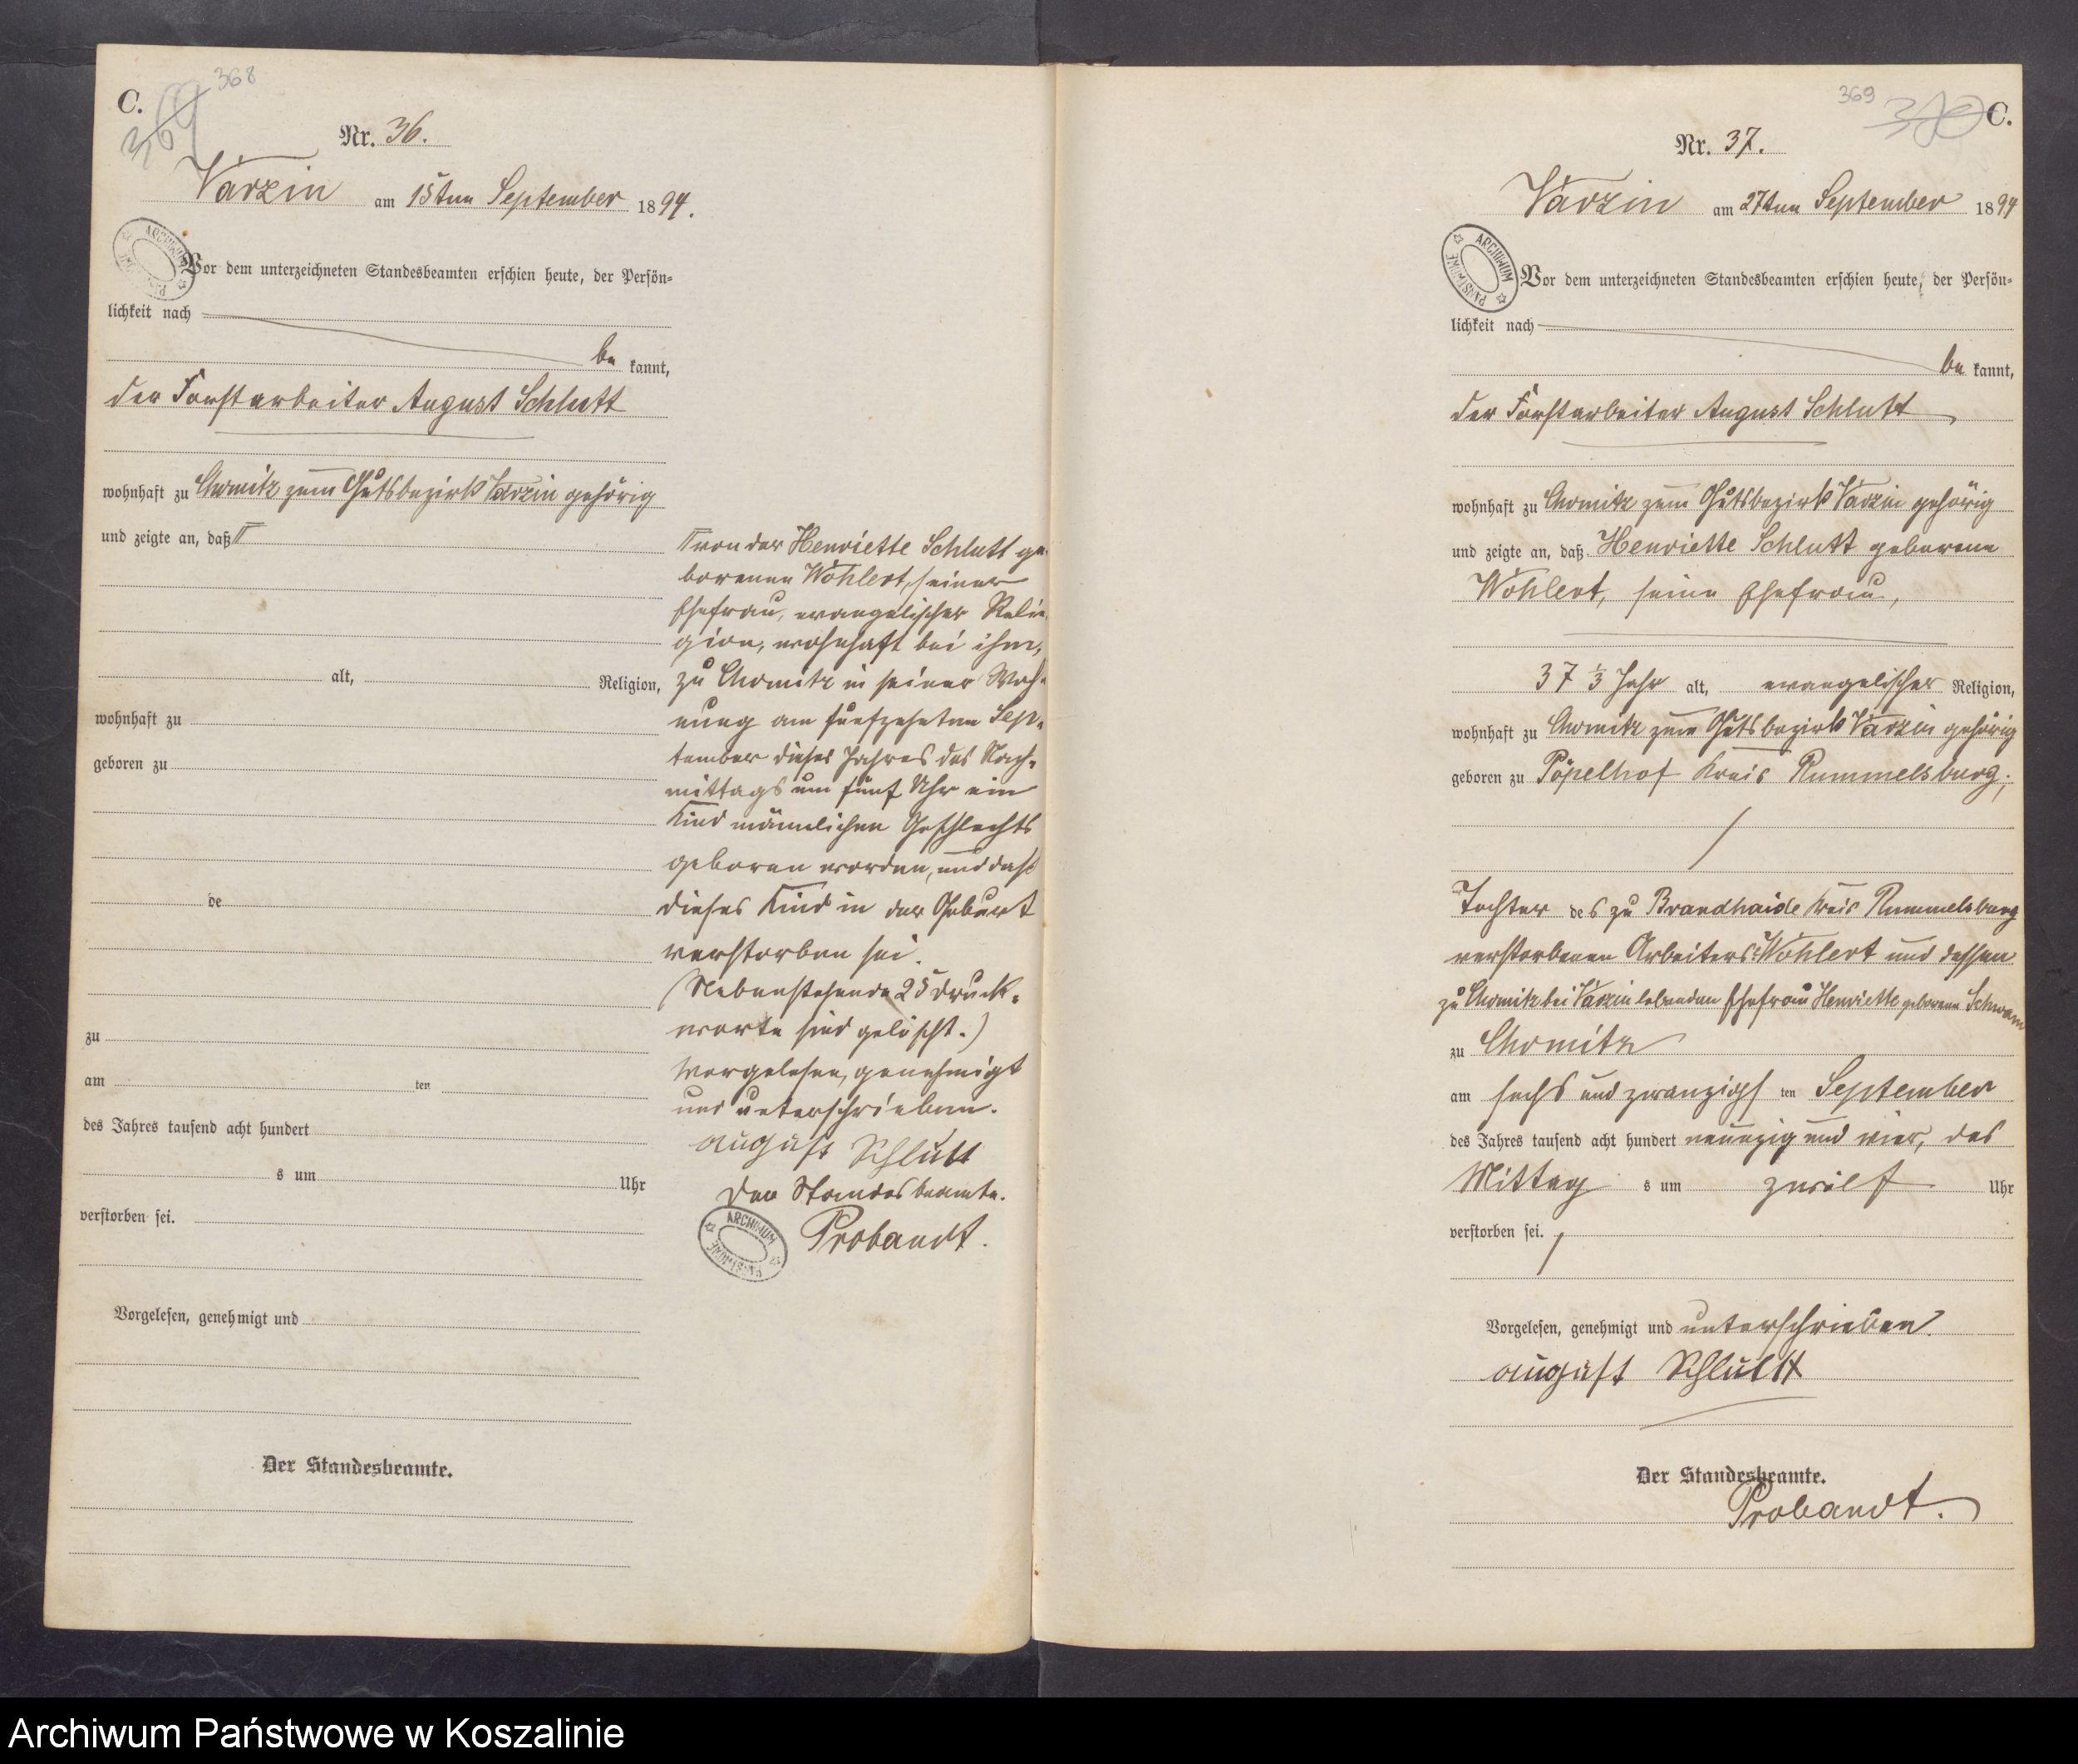 C.
369
368
Nr. 36.
Varzin am 15ten September 1894.
Vor dem unterzeichneten Standesbeamten erschien heute, der Persön-
lichkeit nach
be kannt,
der Forstarbeiter August Schlutt
wohnhaft zu Chomitz zum Gutsbezirk Varzin gehörig
und zeigte an, daß
alt, Religion,
wohnhaft zu
geboren zu
de
zu
am ten
des Jahres tausend acht hundert
s um Uhr
verstorben sei.
Vorgelesen, genehmigt und
Der Standesbeamte.
von der Henriette Schlutt ge-
borenen Wöhlert, seiner
Ehefrau, evangelischer Reli-
gion, wohnhaft bei ihm,
zu Chomitz in seiner Woh-
nung am fünfzehnten Sep-
tember dieses Jahres des Nach-
mittags um fünf Uhr ein
Kind männlichen Geschlechts
geboren worden, und daß
dieses Kind in der Geburt
verstorben sei.
(Nebenstehende 25 Druck-
worte sind gelöscht.)
Vorgelesen, genehmigt
und unterschrieben.
August Schlutt
Der Standesbeamte.
Probandt.
ARCHIWUM PAŃSTWOWE
369
370
C.
Nr. 37.
Varzin am 27ten September 1894
ARCHIWUM PAŃSTWOWE
Vor dem unterzeichneten Standesbeamten erschien heute, der Persön-
lichkeit nach
be kannt,
der Forstarbeiter August Schlutt
wohnhaft zu Chomitz zum Gutsbezirk Varzin gehörig
und zeigte an, daß Henriette Schlutt geborene
Wöhlert, seine Ehefrau,
37 1/3 Jahr alt, evangelischer Religion,
wohnhaft zu Chomitz zum Gutsbezirk Varzin gehörig
geboren zu Pöpelhof Kreis Rummelsburg,
Tochter des zu Brandhaide Kreis Rummelsburg
verstorbenen Arbeiters Wöhlert und dessen
zu Chomitz bei Varzin lebenden Ehefrau Henriette geborene
zu Chomitz
am sechs und zwanzigs ten September
des Jahres tausend acht hundert neunzig und vier, des
Mittag s um zwölf Uhr
verstorben sei.
Vorgelesen, genehmigt und unterschrieben.
August Schlutt
Der Standesbeamte.
Probandt.
Archiwum Państwowe w Koszalinie